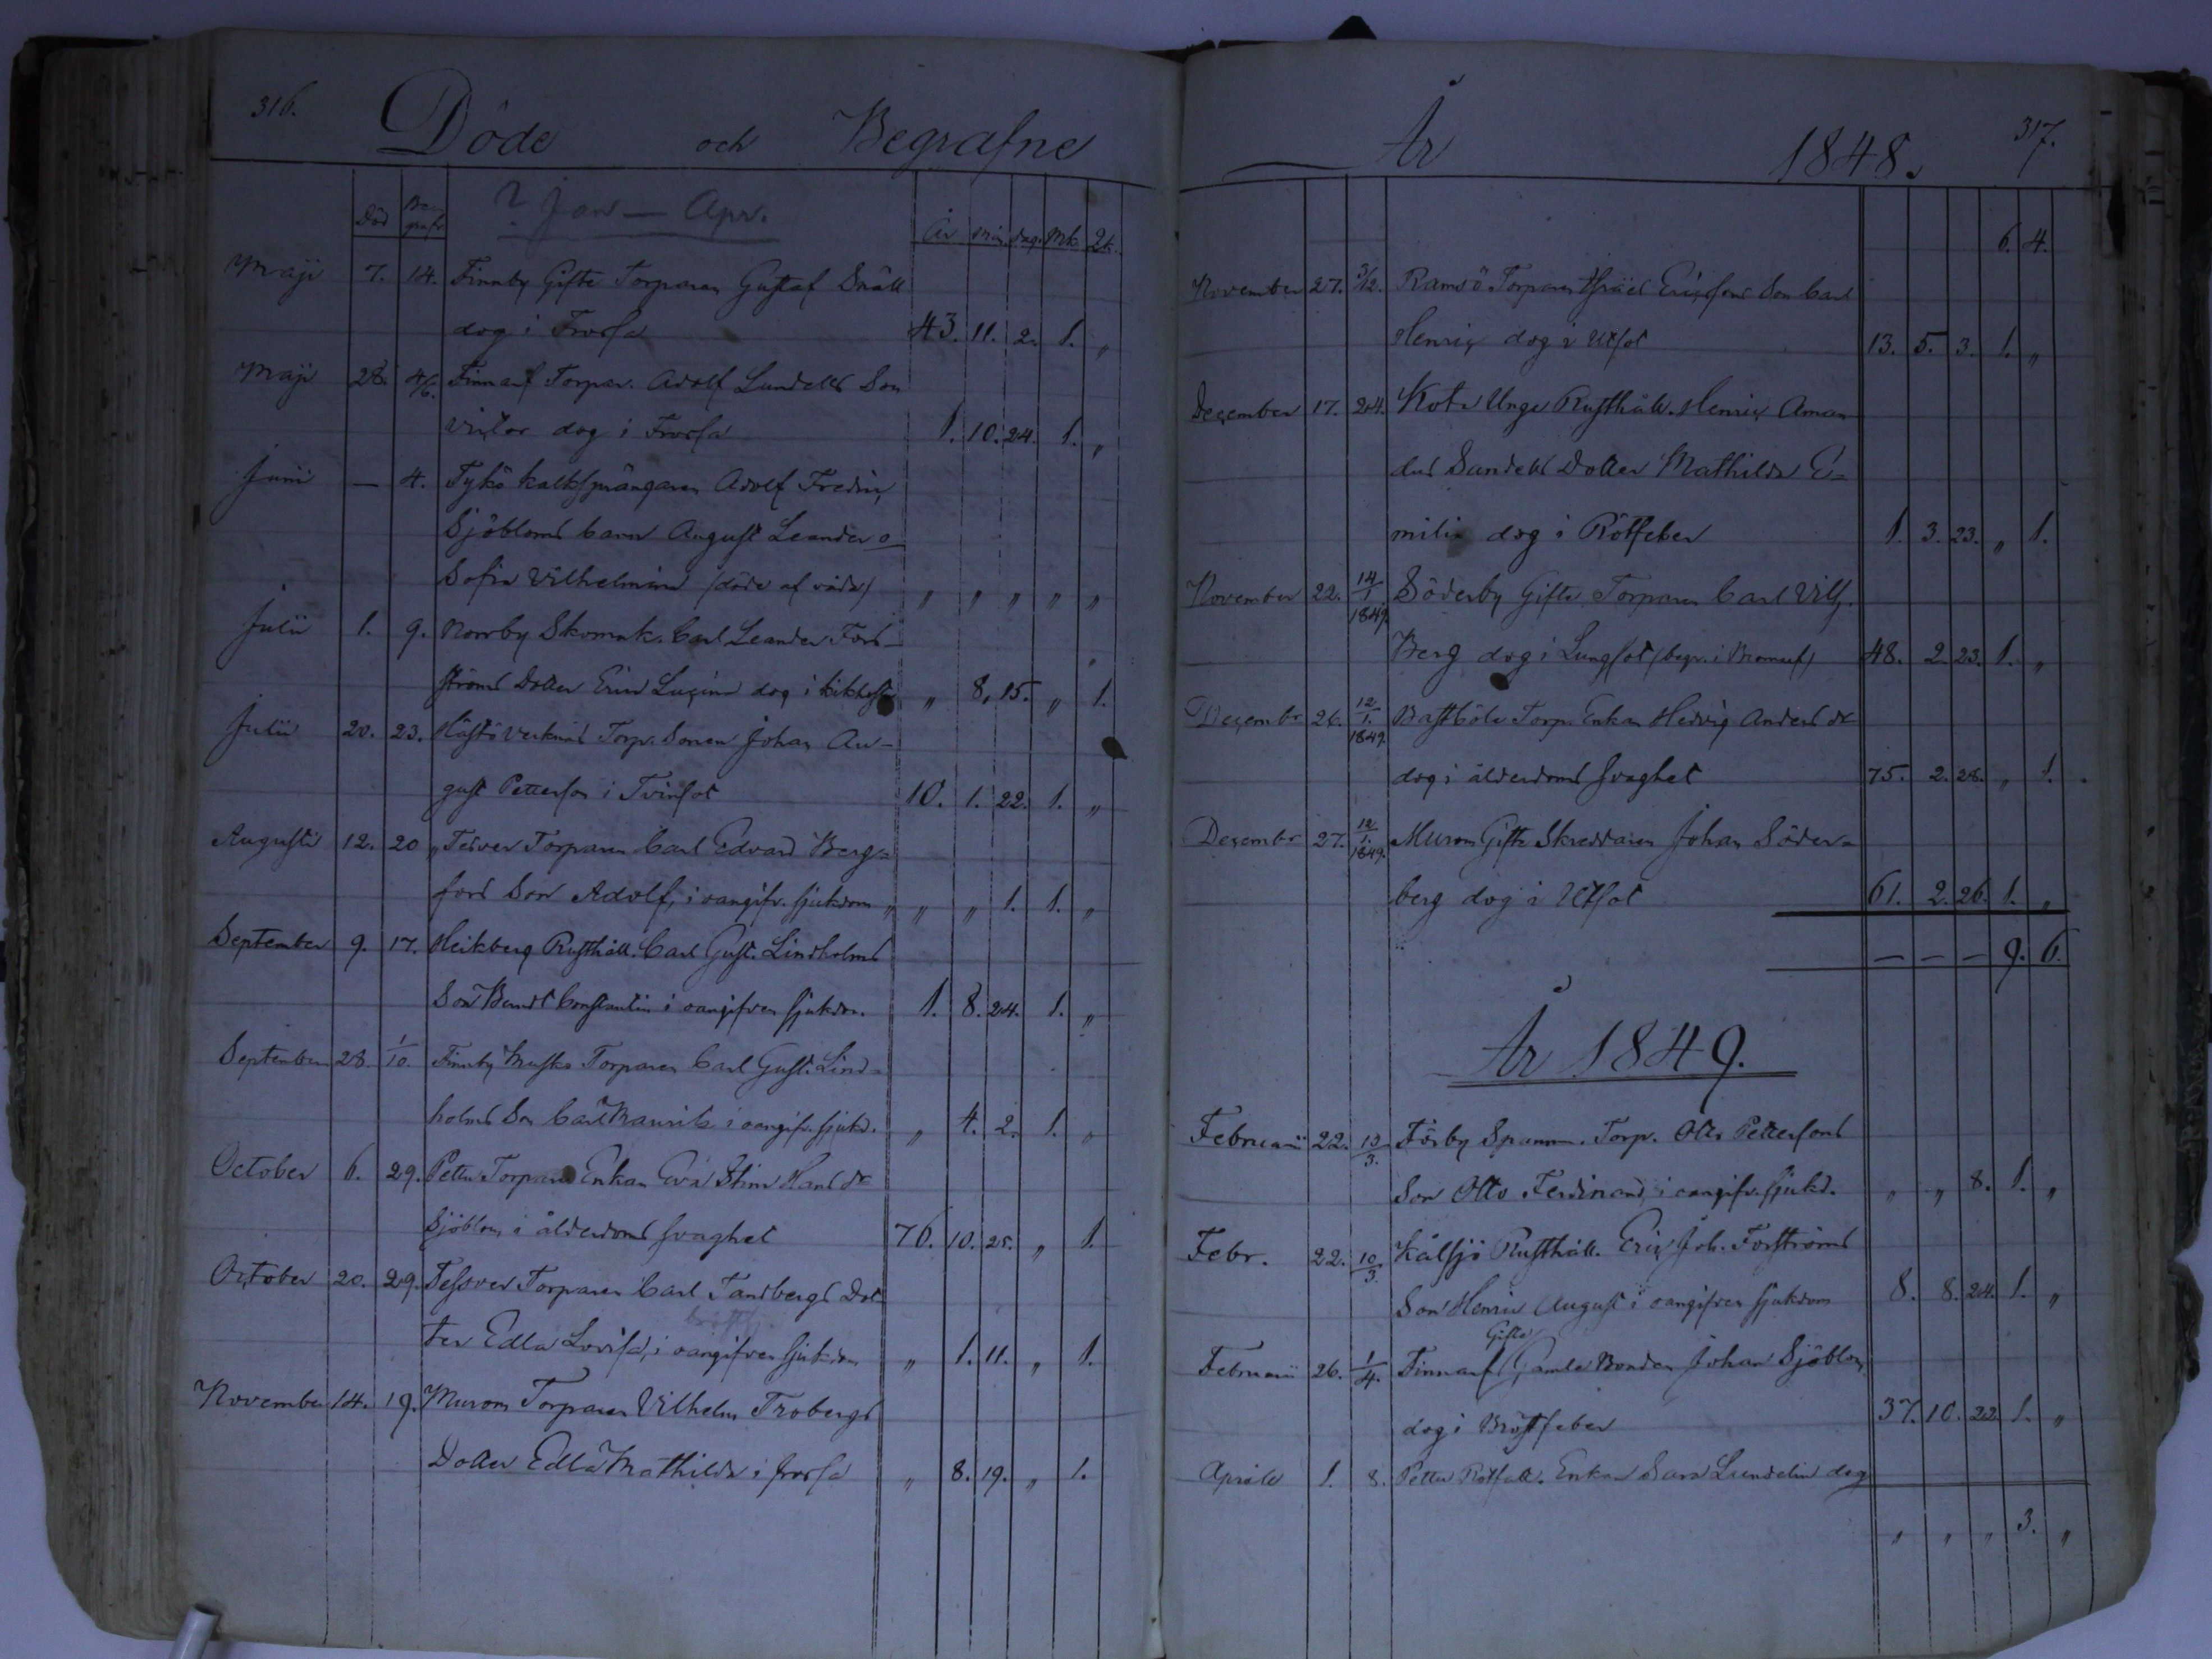 316.
Döde och Begrafne
Död Be-
grafn
? Jan — Apr.
År mån. dag. Mk. Qk.
Maji 7. 14. Finnby Gifte Torparen Gustaf Snäll
dog i Frossa 43. 11. 2. 1. "
Maji 28. 4/6. Finnarf Torpar. Adolf Lundells Son
Victor dog i Frossa 1. 10. 24. 1. "
Junii — 4. Tykö kalksprängaren Adolf Fredric
Sjöbloms barn August Leander o
Sofia Vilhelmina (döde af våda) " " " " "
Julii 1. 9. Norrby Skomak. Carl Leander Fors-
ströms Dotter Erica Lucina dog i kikhosta " 8. 15. " 1.
Julii 20. 23. Torp. Sonen Johan Au-
gust Petterson i Tvinsot 10. 1. 22. 1. "
Augusti 12. 20 Torparen Carl Edvard Berg-
fors Son Adolf, i oangifv. sjukdom " " " 1. 1. "
September 9. 17. Meikberg Rusthåll. Carl Gust. Lindholms
Son Berndt Constantin i oangifven sjukdom. 1. 8. 24. 1. "
September 28. 1/10. Finnby Torparen Carl Gust. Lind-
holms Son Carl Maurits i oangifv. sjukd. " 4. 2. 1. "
October 6. 29. Petter Torpare Enkan Eva Stina Hansdr
Sjöblom i ålderdoms svaghet 76. 10. 25. " 1.
October 20. 29. Tessver Torparen Carl Tandbergs Dot-
ter Edla Lovisa, i oangifven sjukdom " 1. 11. " 1.
November 14. 19. Murom Torparen Vilhelm Frobergs
Dotter Edla Mathilda i frossa " 8. 19. " 1.
År 1848. 317.
6. 4.
November 27. 3/12. Ramsö Torparen Israel Ericsons Son Carl
Henric dog i Utsot 13. 5. 3. 1. "
December 17. 24. Unge Rusthåll. Henric Aman-
dus Sandells Dotter Mathilda E-
milia dog i Rötfeber 1. 3. 23. " 1.
November 22. 14/1 1849. Söderby Gifte Torparen Carl Vilh.
Berg dog i Lungsot (begr. i Bromarf) 48. 2. 23. 1. "
Decembr 26. 12/1. 1849. Bastböle Torp. Enkan Hedvig Andersdr
dog i ålderdoms svaghet 75. 2. 28. " 1.
Decembr 27. 12/1. 1849. Murom Gifte Skreddaren Johan Söder-
berg dog i Utsot 61. 2. 26. 1. "
— — — 9. 6.
År 1849.
Februarii 22. 10/3. Förby Torp. Otto Pettersons
Son Otto Ferdinand, i oangifv. sjukd. " " 8. 1. "
Febr. 22. 10/3. Kålsjö Rusthåll. Eric Joh. Forströms
Son Henric August i oangifven sjukdom 8. 8. 24. 1. "
Gifte
Februarii 26. 1/4. Finnarf Gamle Bonden Johan Sjöblom
dog i Bröstfeber 37. 10. 22. 1. "
Aprill 1. 8. Petter Enkan Sara Lundelin dog
" " " 3. "